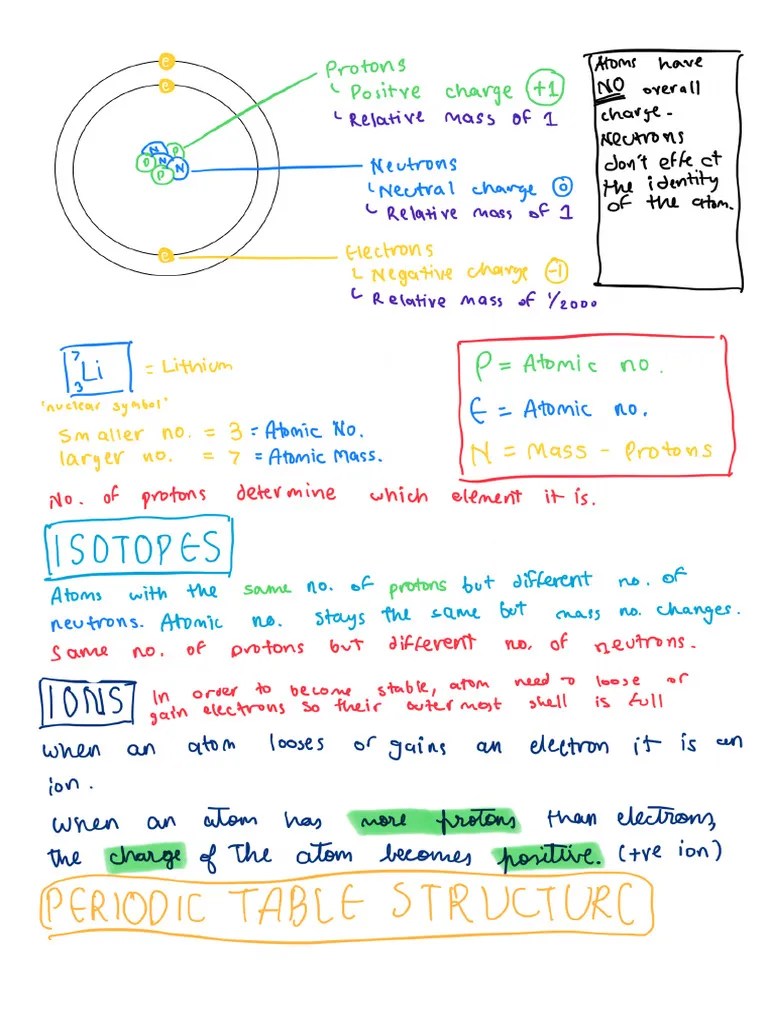 e
e
N
P
P
N
N
P
e
Protons
Positve charge +1
Relative mass of 1
Neutrons
Neutral charge 0
Relative mass of 1
Electrons
Negative charge -1
Relative mass of 1/2000
Atoms have
NO overall
charge.
Neutrons
don't effect
the identity
of the atom.
7
3 Li = Lithium
'nuclear symbol'
smaller no. = 3 = Atomic No.
larger no. = 7 = Atomic Mass.
P = Atomic no.
E = Atomic no.
N = Mass - Protons
No. of protons determine which element it is.
ISOTOPES
Atoms with the same no. of protons but different no. of
neutrons. Atomic no. stays the same but mass no. changes.
Same no. of protons but different no. of neutrons.
IONS
In order to become stable, atom need to loose or
gain electrons so their outermost shell is full
when an atom looses or gains an electron it is an
ion.
when an atom has more protons than electrons,
the charge of the atom becomes positive. (+ve ion)
PERIODIC TABLE STRUCTURE